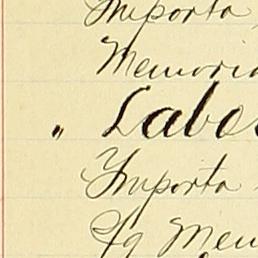 Importa
Memoria
" Labo
Importa
Fg Mem